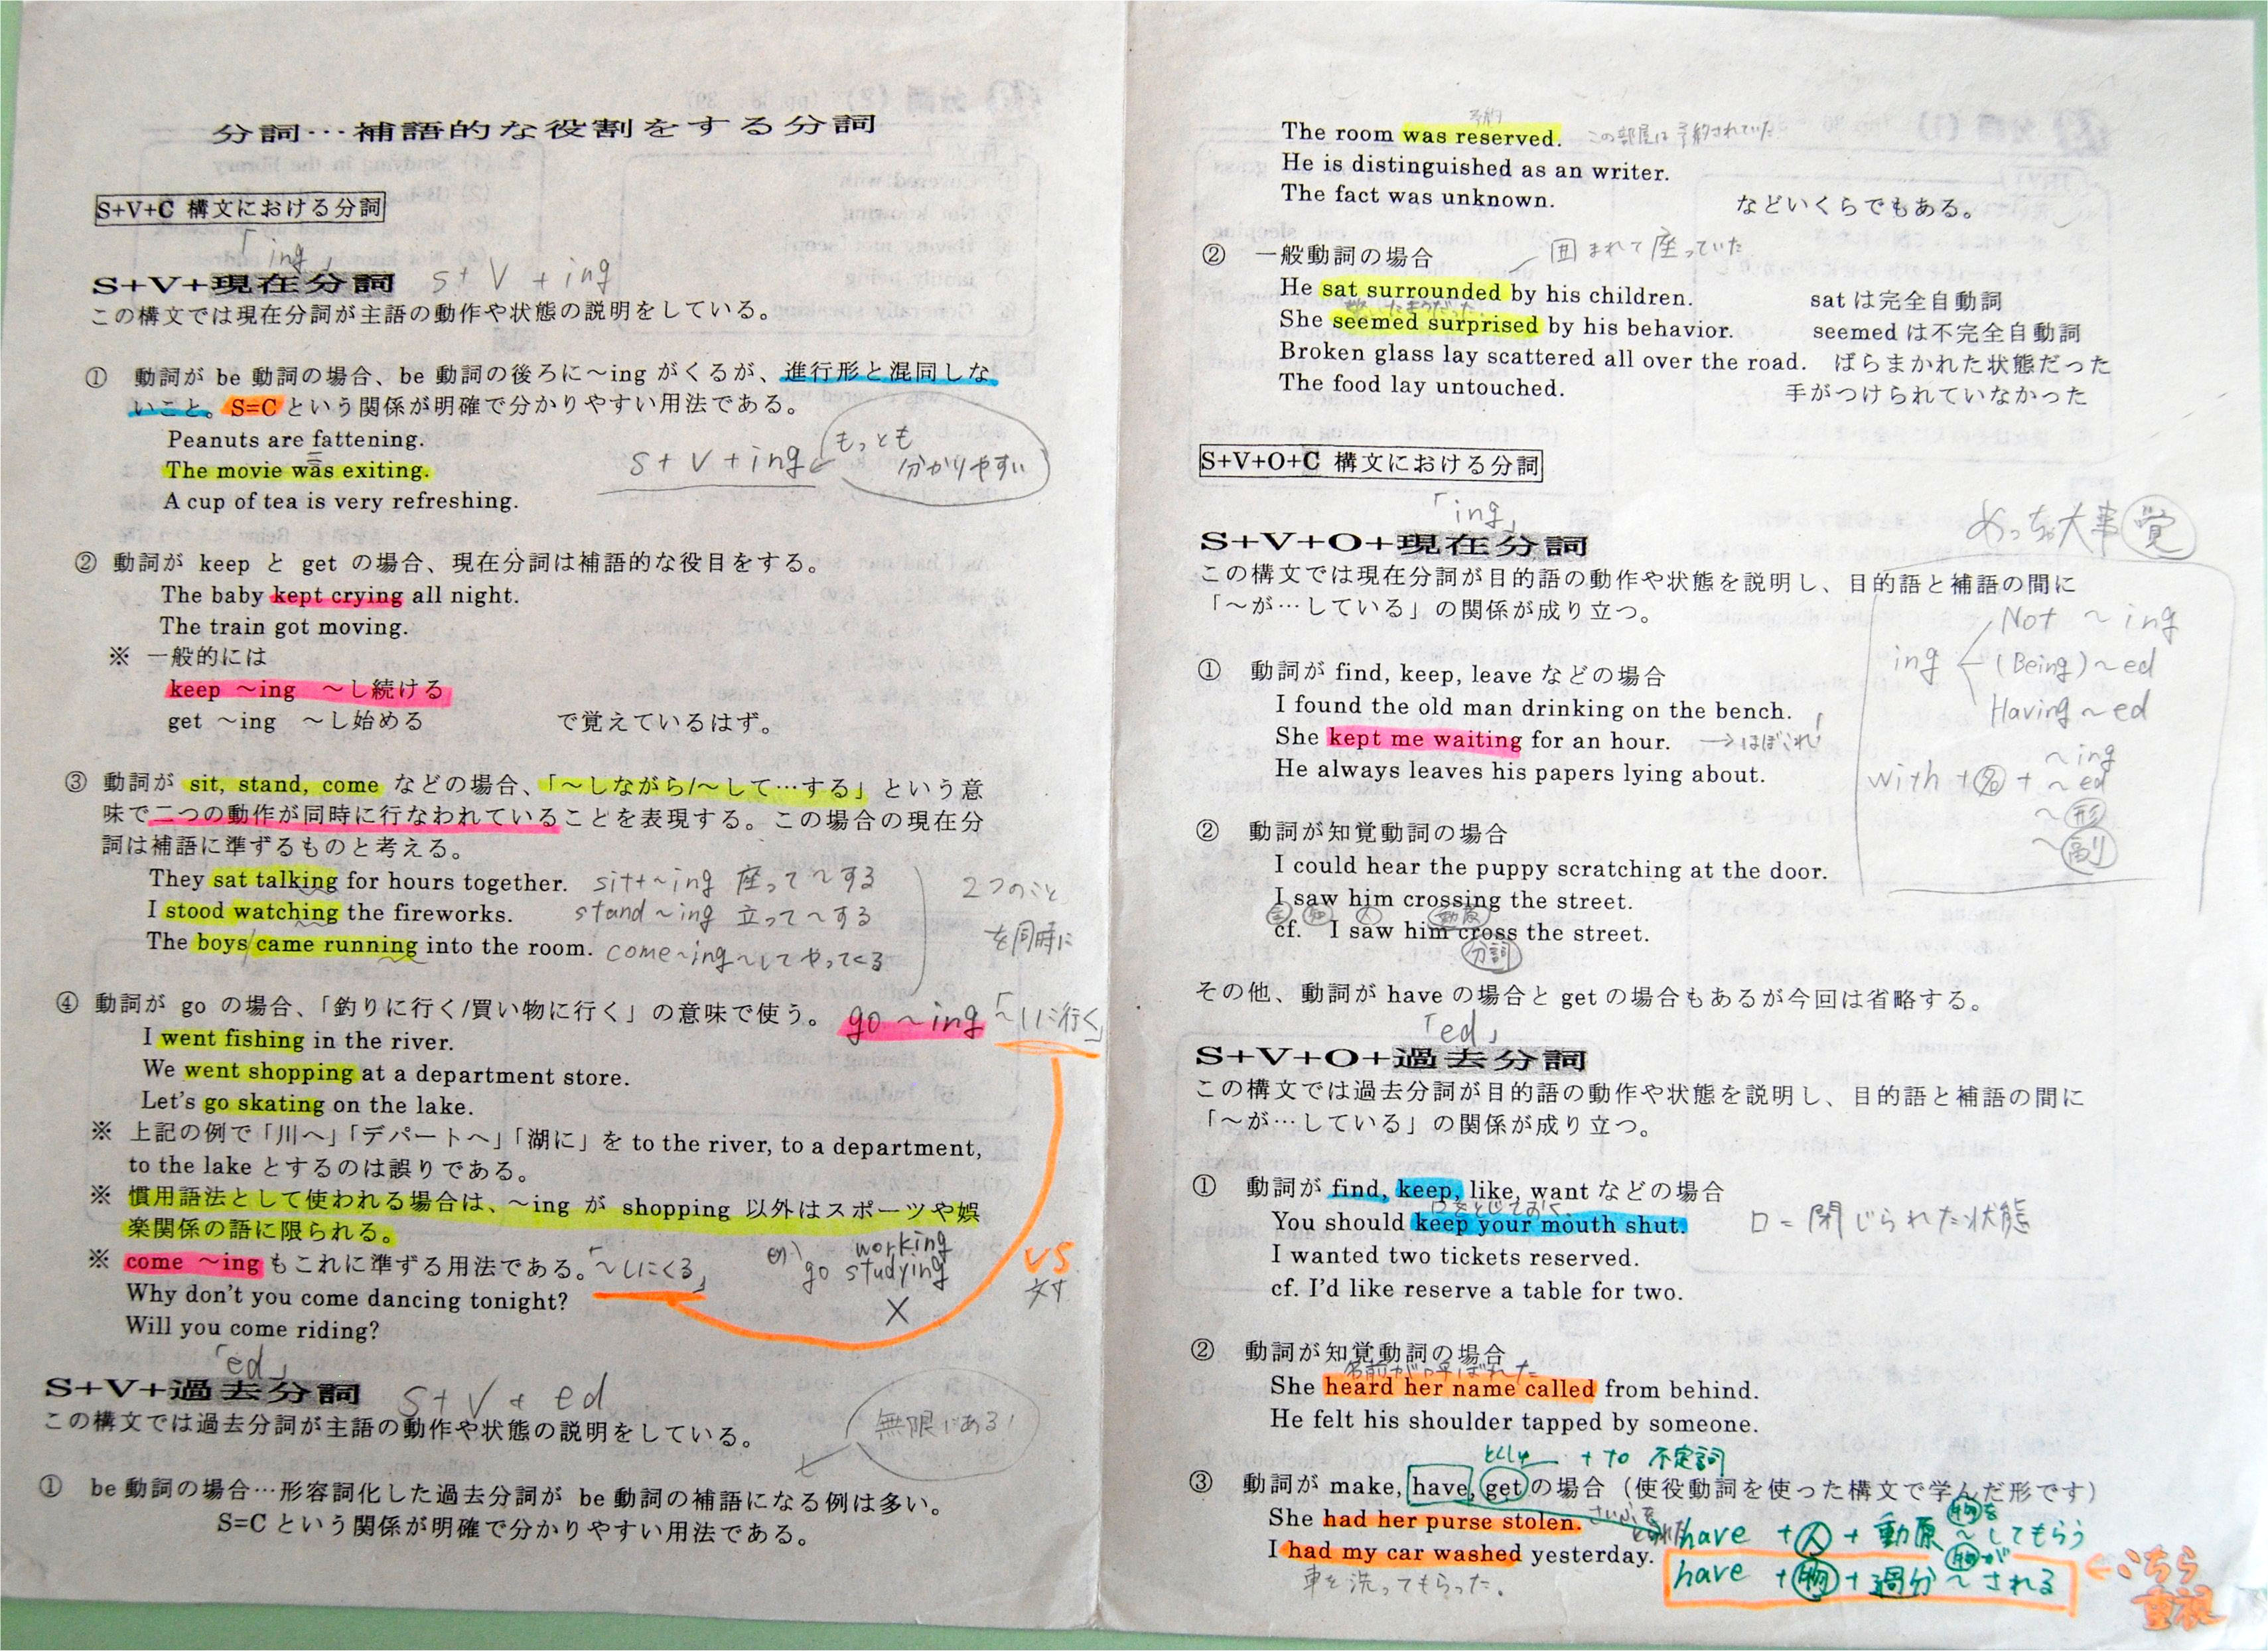 分詞…補語的な役割をする分詞
S+V+C 構文における分詞
「ing」
S+V+現在分詞 S+V+ing
この構文では現在分詞が主語の動作や状態の説明をしている。
① 動詞が be 動詞の場合、be 動詞の後ろに～ing がくるが、進行形と混同しな
いこと。S=C という関係が明確で分かりやすい用法である。
Peanuts are fattening.
The movie was exiting.
A cup of tea is very refreshing.
S+V+ing もっとも
分かりやすい
② 動詞が keep と get の場合、現在分詞は補語的な役目をする。
The baby kept crying all night.
The train got moving.
※ 一般的には
keep ～ing ～し続ける
get ～ing ～し始める で覚えているはず。
③ 動詞が sit, stand, come などの場合、「～しながら/～して…する」という意
味で二つの動作が同時に行なわれていることを表現する。この場合の現在分
詞は補語に準ずるものと考える。
They sat talking for hours together. sit+~ing 座って~する
I stood watching the fireworks. stand~ing 立って~する
The boys came running into the room. come~ing~してやってくる
2つのこと
を同時に
④ 動詞が go の場合、「釣りに行く/買い物に行く」の意味で使う。 go ~ing「~しに行く」
I went fishing in the river.
We went shopping at a department store.
Let's go skating on the lake.
※ 上記の例で「川へ」「デパートへ」「湖に」を to the river, to a department,
to the lake とするのは誤りである。
※ 慣用語法として使われる場合は、～ing が shopping 以外はスポーツや娯
楽関係の語に限られる。
※ come ～ing もこれに準ずる用法である。「~しにくる」
例) go working
studying
×
VS
対
Why don't you come dancing tonight?
Will you come riding?
「ed」
S+V+過去分詞 S+V+ed
この構文では過去分詞が主語の動作や状態の説明をしている。
無限にある!
① be 動詞の場合…形容詞化した過去分詞が be 動詞の補語になる例は多い。
S=C という関係が明確で分かりやすい用法である。
予約
The room was reserved. この部屋は予約されていた
He is distinguished as an writer.
The fact was unknown. などいくらでもある。
② 一般動詞の場合 囲まれて座っていた
He sat surrounded by his children. sat は完全自動詞
She seemed surprised by his behavior. seemed は不完全自動詞
Broken glass lay scattered all over the road. ばらまかれた状態だった
The food lay untouched. 手がつけられていなかった
S+V+O+C 構文における分詞
「ing」
S+V+O+現在分詞
この構文では現在分詞が目的語の動作や状態を説明し、目的語と補語の間に
「～が…している」の関係が成り立つ。
めっちゃ大事 覚
ing
Not ~ing
(Being)~ed
Having~ed
with+名+
~ing
~ed
~形
~副
① 動詞が find, keep, leave などの場合
I found the old man drinking on the bench.
She kept me waiting for an hour. →ほぼこれ!
He always leaves his papers lying about.
② 動詞が知覚動詞の場合
I could hear the puppy scratching at the door.
I saw him crossing the street.
主 知 人 動原
cf. I saw him cross the street.
分詞
その他、動詞が have の場合と get の場合もあるが今回は省略する。
「ed」
S+V+O+過去分詞
この構文では過去分詞が目的語の動作や状態を説明し、目的語と補語の間に
「～が…している」の関係が成り立つ。
① 動詞が find, keep, like, want などの場合
口をとじておく
You should keep your mouth shut. 口=閉じられた状態
I wanted two tickets reserved.
cf. I'd like reserve a table for two.
② 動詞が知覚動詞の場合
名前が呼ばれた
She heard her name called from behind.
He felt his shoulder tapped by someone.
+ to 不定詞
③ 動詞が make, have, get の場合（使役動詞を使った構文で学んだ形です）
She had her purse stolen. さいふを
I had my car washed yesterday.
車を洗ってもらった。
have +人+動原 物を~してもらう
have +物+過分 物が~される
←こちら
重視